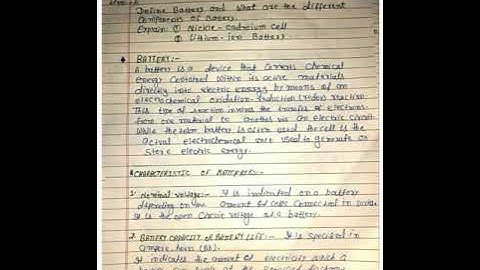 Define Battery and what are the different
Components of Battery.
Explain ① Nickle-cadmium cell
② Lithium-ion Battery.
BATTERY:-
A battery is a device that converts chemical
energy contained within its active materials
directly into electric energy by means of an
electrochemical oxidation-reduction (redox) reaction.
This type of reaction involves the transfer of electrons
from one material to another via an electric circuit.
While the term battery is often used the cell is the
actual electrochemical unit used to generate or
store electric energy.
CHARACTERISTIC OF BATTERY:-
1. Nominal Voltage:- It is indicated on a battery
depending on the amount of cells connected in series.
It is the open circuit voltage of a battery.
2. BATTERY CAPACITY or BATTERY LIFE:- It is specified in
ampere-hours (Ah).
It indicates the amount of electricity which a